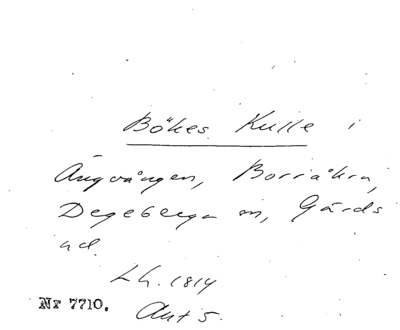 Bökes Kulle i
Ängvången, Borråkra,
Degeberga sn, Gärds
hd.
Lh. 1814
Nr 7710. Akt 5.